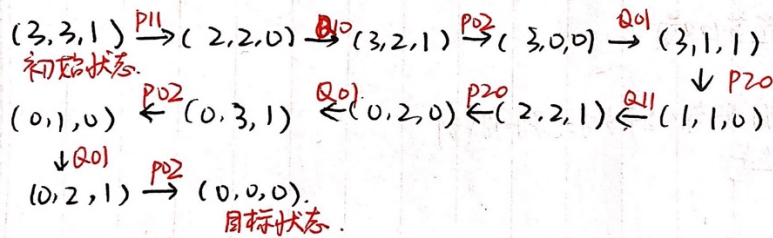 (3,3,1) P11→ (2,2,0) Q10→ (3,2,1) P02→ (3,0,0) Q01→ (3,1,1)
初始状态.
↓ P20
(0,1,0) P02← (0,3,1) Q01← (0,2,0) P20← (2,2,1) Q11← (1,1,0)
↓Q01
(0,2,1) P02→ (0,0,0).
目标状态.